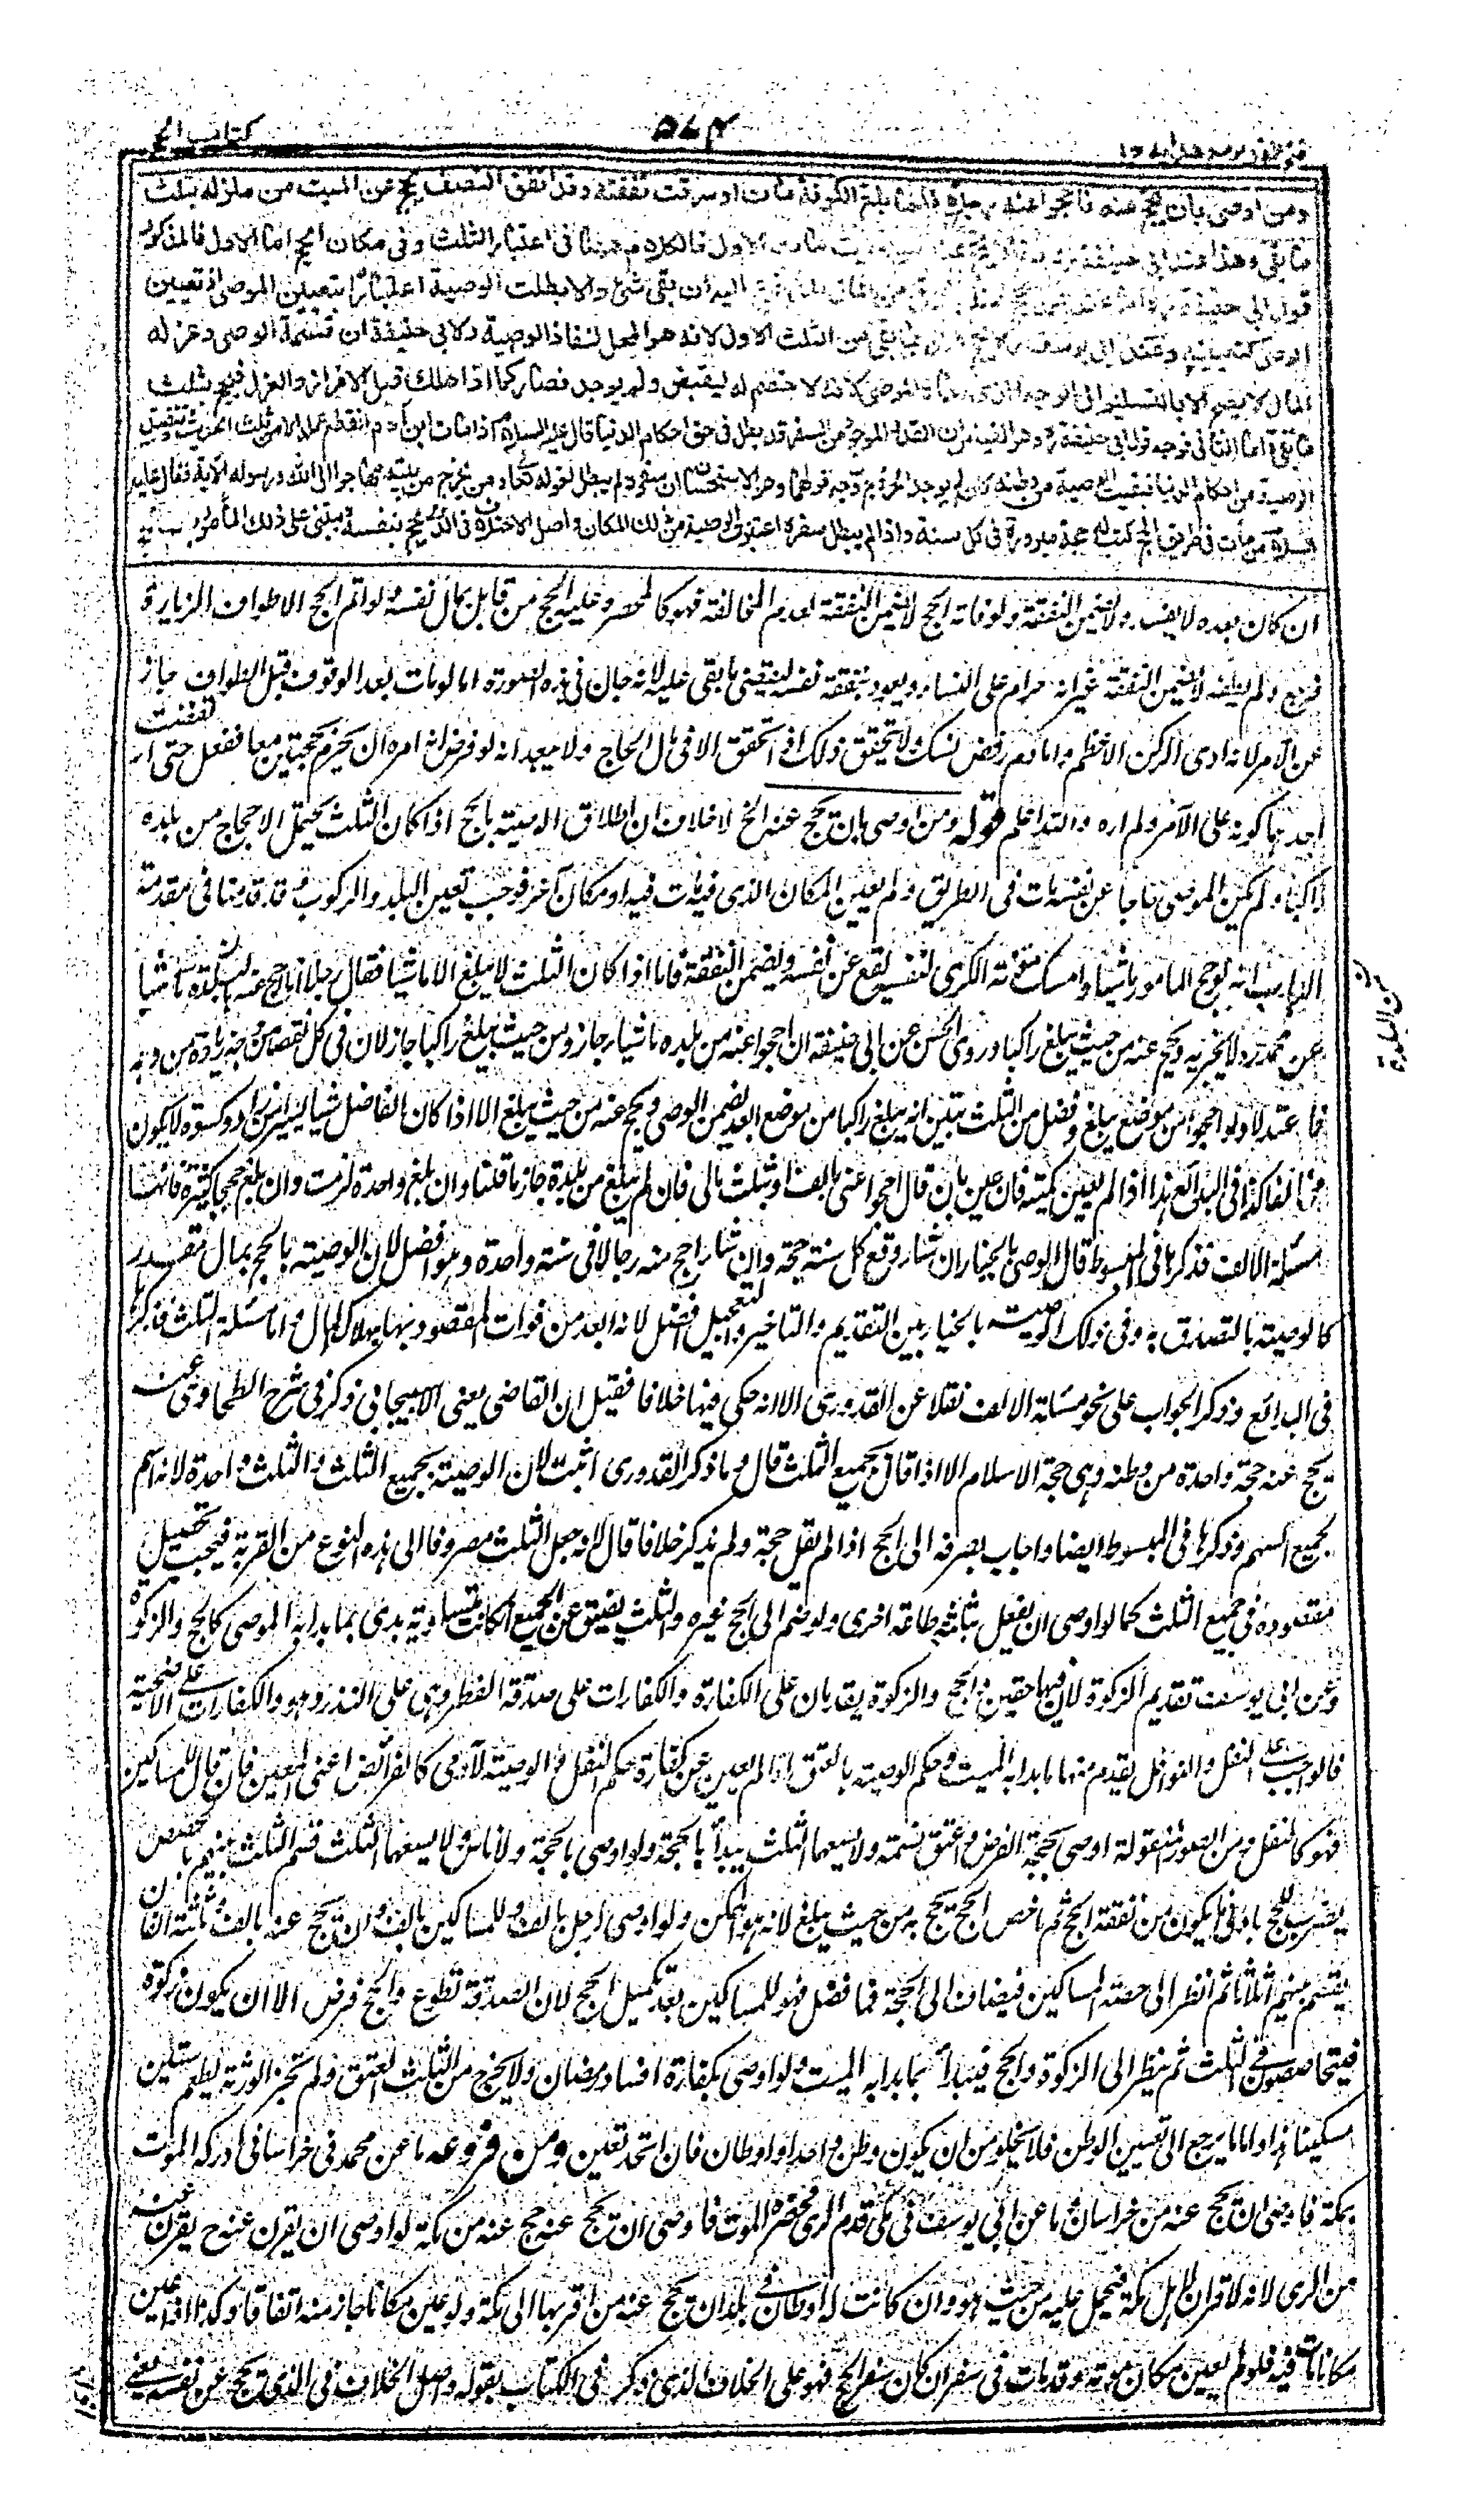 فتح القدير مع هدايه ج ١
٥٧٤
كتاب الحج
ومن اوصى بان يحج عنه فاحجوا عنه رجلا فلما بلغ الكوفة مات او سرقت نفقته وقد انفق النصف يحج عن الميت من منزله بثلث
ما بقى وهذا عند ابى حنيفة فالكلام ههنا فى اعتبار الثلث وفى مكان الحج اما الاول فالمذكور
قول ابى حنيفة من المال المدفوع اليه ان بقى شئ والا بطلت الوصية اعتبارا بتعيين الموصى اذ تعيين
الوصى كتعيينه وعند ابى يوسف يحج عنه بما بقى من الثلث الاول لانه هو المحل لنفاذ الوصية ولابى حنيفة ان قسمة الوصى وعزله
المال لا يصح الا بالتسليم الى الوجه الذى سماه الموصى لانه لا خصم له ليقبض ولم يوجد فصار كما اذا هلك قبل الافراز والعزل فيحج بثلث
ما بقى واما الثانى فوجه قول ابى حنيفة وهو القياس ان القدر الموجود من السفر قد بطل فى حق احكام الدنيا قال عليه السلام اذا مات ابن آدم انقطع عمله الا من ثلث الحديث وتنفيذ
الوصية من احكام الدنيا فبقيت الوصية من وطنه كان لم يوجد الخروج وجه قولهما وهو الاستحسان ان سفره لم يبطل لقوله تعالى ومن يخرج من بيته مهاجرا الى الله ورسوله الآية وقال عليه
السلام من مات فى طريق الحج كتب له حجة مبرورة فى كل سنة واذا لم يبطل سفره اعتبرت الوصية من ذلك المكان واصل الاختلاف فى الذى يحج بنفسه ويبتنى على ذلك المأمور بالحج
ان كان بعده لا يفسد ولا يضمن النفقة ولو فاته الحج لا يضمن النفقة لعدم المخالفة فهو كالمحصر وعليه الحج من قابل بمال نفسه ولو اتم الحج الا طواف الزيارة
فرجع ولم يطفه لا يضمن النفقة غير انه حرام على النساء ويعود بنفقة نفسه ليقضى ما بقى عليه لانه جان فى هذه الصورة اما لو مات بعد الوقوف قبل الطواف جاز
عن الآمر لانه ادى الركن الاعظم واما دم رفض نسك ولا يتحقق ذلك اذا تحقق الا فى مال الحاج ولا يبعد انه لو فرض انه امره ان يحرم بحجتين معا ففعل حتى ارتفضت
احدهما كونه على الآمر ولم اره والله اعلم قوله ومن اوصى بان يحج عنه الخ لا خلاف ان اطلاق الوصية بالحج اذا كان الثلث يحتمل الاحجاج من بلده
راكبا ولم يكن الموصى حاجا عن نفسه مات فى الطريق ولم يعين المكان الذى مات فيه او مكان آخر فوجب تعين البلد والركوب وقد قدمنا فى مقدمة
الباب انه لو حج المامور ماشيا وامسك مؤنة الكرى لنفسه يقع عن نفسه ويضمن النفقة فاما اذا كان الثلث لا يبلغ الا ماشيا فقال رجل انا احج عنه من البلدة ماشيا
عن محمد رح لا يجزيه ويحج عنه من حيث يبلغ راكبا وروى الحسن عن ابى حنيفة ان احجوا عنه من بلده ماشيا جاز ومن حيث يبلغ راكبا جاز لان فى كل نقصا من وجه زيادة من وجه
فاعتدلا ولو احجوا من موضع يبلغ وفضل من الثلث تبين انه يبلغ راكبا من موضع ابعد يضمن الوصى ويحج عنه من حيث يبلغ الا اذا كان الفاضل شيئا يسيرا من زاد وكسوة لا يكون
مخالفا كذا فى البدائع هذا اذا لم يعين كمية فان عين بان قال احجوا عنى بالف او بثلث مالى فان لم يبلغ من بلده جاز ما قلنا وان بلغ واحدة لزمت وان بلغ حججا كثيرة فانها
مسئلة الالف فذكرها فى المبسوط قال الوصى بالخيار ان شاء وقع كل سنة حجة وان شاء احج عنه رجالا فى سنة واحدة وهو افضل لان الوصية بالحج بمال مقدر
كالوصية بالتصدق به وفى ذلك الوصى بالخيار بين التقديم والتاخير والتعجيل افضل لانه ابعد من فوات المقصود بها بهلاك المال واما مسئلة الثلث فذكر
فى البدائع وذكر الجواب على نحو مسئلة الالف نقلا عن القدورى الا انه حكى فيها خلافا فقيل ان القاضى يعنى الاسبيجابى ذكر فى شرح الطحاوى عن
يحج عنه حجة واحدة من وطنه وهى حجة الاسلام الا اذا قال بجميع الثلث قال وما ذكر القدورى اثبت لان الوصية بجميع الثلث والثلث واحدة لانه اسم
لجميع السهم وذكرها فى المبسوط ايضا واجاب بصرفه الى الحج اذا لم يقل حجة ولم يذكر خلافا قال لانه جعل الثلث مصروفا الى هذه النوع من القربة فيجب تحصيل
مقصوده فى جميع الثلث كما لو اوصى ان يفعل بثلثه طاعة اخرى ولو ضم الى الحج غيره والثلث يضيق عن الجميع ان كانت متساوية بدى بما بدا به الموصى كالحج والزكوة
وعن ابى يوسف تقديم الزكوة لان فيها حقين والحج والزكوة يقدمان على الكفارة والكفارات على صدقة الفطر وهى على النذر وهو والكفارات على الاضحية
والواجب على النفل والنوافل يقدم منها ما بدا به الميت وحكم الوصية بالعتق اذا لم يعين عن كفارة حكم النفل والوصية لآدمى كالفرائض اعنى المعين فان قال للمساكين
فهو كالنفل ومن الصور المنقولة اوصى بحجة الفرض وعتق نسمة ولا يسعهما الثلث يبدأ بالحجة ولو اوصى بالحجة ولاناس ولا يسعها الثلث قسم الثلث بينهم بالحصص
يضرب للحج بادنى ما يكون من نفقة الحج ثم ما خص الحج يحج به من حيث يبلغ لانه هو الممكن ولو اوصى لرجل بالف وللمساكين بالف وان يحج عنه بالف وثلثه الفان
يقسم بينهم اثلاثا ثم انظر الى حصة المساكين فيضاف الى الحجة فما فضل فهو للمساكين بعد تكميل الحج لان الصدقة تطوع والحج فرض الا ان يكون زكوة
فيتحاصصون فى الثلث ثم ينظر الى الزكوة والحج فيبدأ بما بدا به الميت ولو اوصى بكفارة افساد رمضان ولا يخرج من الثلث العتق ولم تجز الورثة يطعم ستين
مسكينا هذا واما ما يرجع الى تعيين الوطن فلا يخلو من ان يكون وطن واحدا او اوطان فان اتحد تعين ومن فروعه ما عن محمد فى خراسانى ادركه الموت
بمكة فاوصى ان يحج عنه من خراسان وما عن ابى يوسف فى مكى قدم الرى فحضره الموت فاوصى ان يحج عنه حج عنه من مكة لو اوصى ان يقرن عنه ح يقرن عنه
من الرى لانه لا قران لاهل مكة فيحمل عليه من حيث هو وان كانت له اوطان فى بلدان يحج عنه من اقربها الى مكة ولو عين مكانا جاز منه اتفاقا وكذا اذا عين
مكانا مات فيه فلو لم يعين مكان موته وقد مات فى سفر ان كان سفر الحج فهو على الخلاف الذى ذكر فى الكتاب بقوله واصل الخلاف فى الذى يحج عن نفسه يعنى
من البلدة